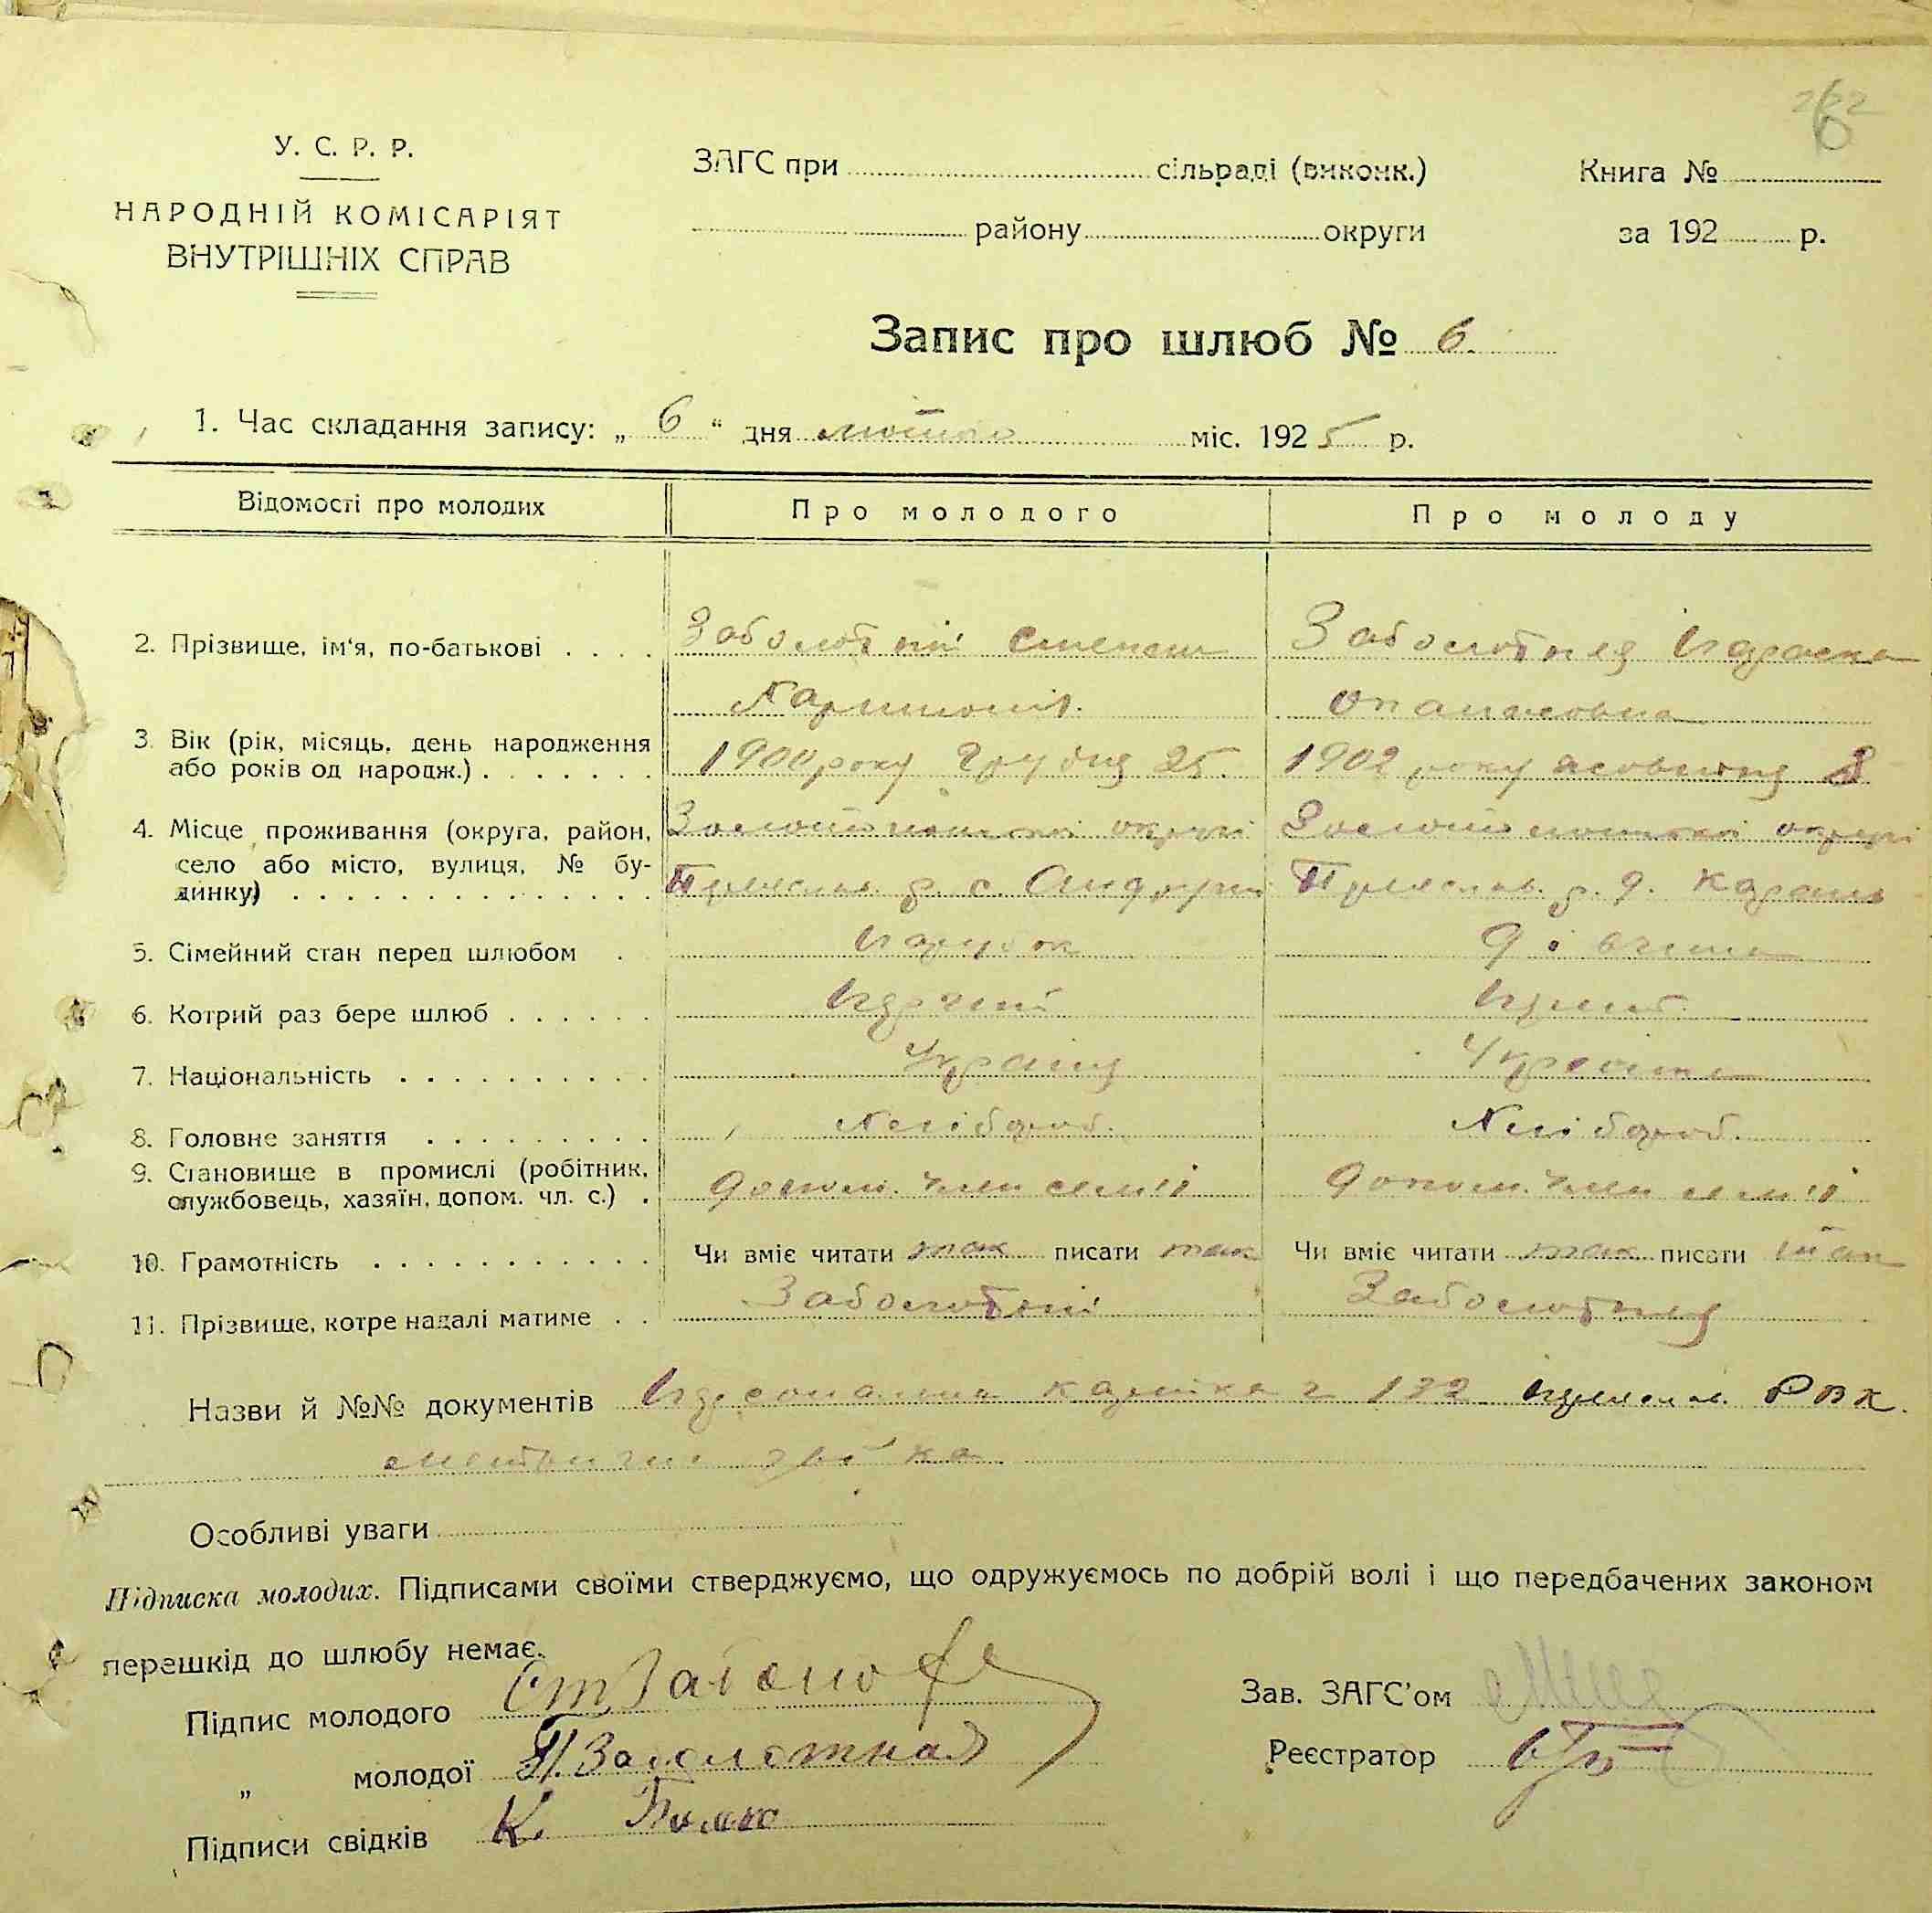 У. С. Р. Р.
НАРОДНІЙ КОМІСАРІЯТ
ВНУТРІШНІХ СПРАВ
ЗАГС при сільраді (виконк.)
району округи
Книга №
за 192 р.
Запис про шлюб № 6.
1. Час складання запису: „ 6 “ дня лютого міс. 1925 р.
Відомості про молодих
Про молодого
Про молоду
2. Прізвище, ім‘я, по-батькові . . . .
Заболотній Степан
Заболотня Параска
Опанасовна
3. Вік (рік, місяць, день народження
або років од народж.) . . . . . . .
1900 року Грудня 25.
1902 року жовтня 3
4. Місце проживання (округа, район,
село або місто, вулиця, № бу-
динку) . . . . . . . . . . . . . .
Золотоношської округі
Золотоношської округі
Переяслав. р. с. Андруші
Переяслав. р. д. Карань
5. Сімейний стан перед шлюбом .
парубок
дівчина
6. Котрий раз бере шлюб . . . . . .
Перший
Перший
7. Національність . . . . . . . . . .
Українка
8. Головне заняття . . . . . . . . .
Хлібороб.
Хлібороб.
9. Становище в промислі (робітник,
службовець, хазяїн, допом. чл. с.) .
допом. член семії
допом. член семії
10. Грамотність . . . . . . . . . . .
Чи вміє читати так писати так
Чи вміє читати так писати так
11. Прізвище, котре надалі матиме . .
Заболотній
Заболотня
Назви й №№ документів Персональна картка ч 122 Переяслав. РВК.
Особливі уваги
Підписка молодих. Підписами своїми стверджуємо, що одружуємось по добрій волі і що передбачених законом
перешкід до шлюбу немає.
Підпис молодого
„ молодої П. Заболотная
Підписи свідків К.
Зав. ЗАГС’ом
Реєстратор